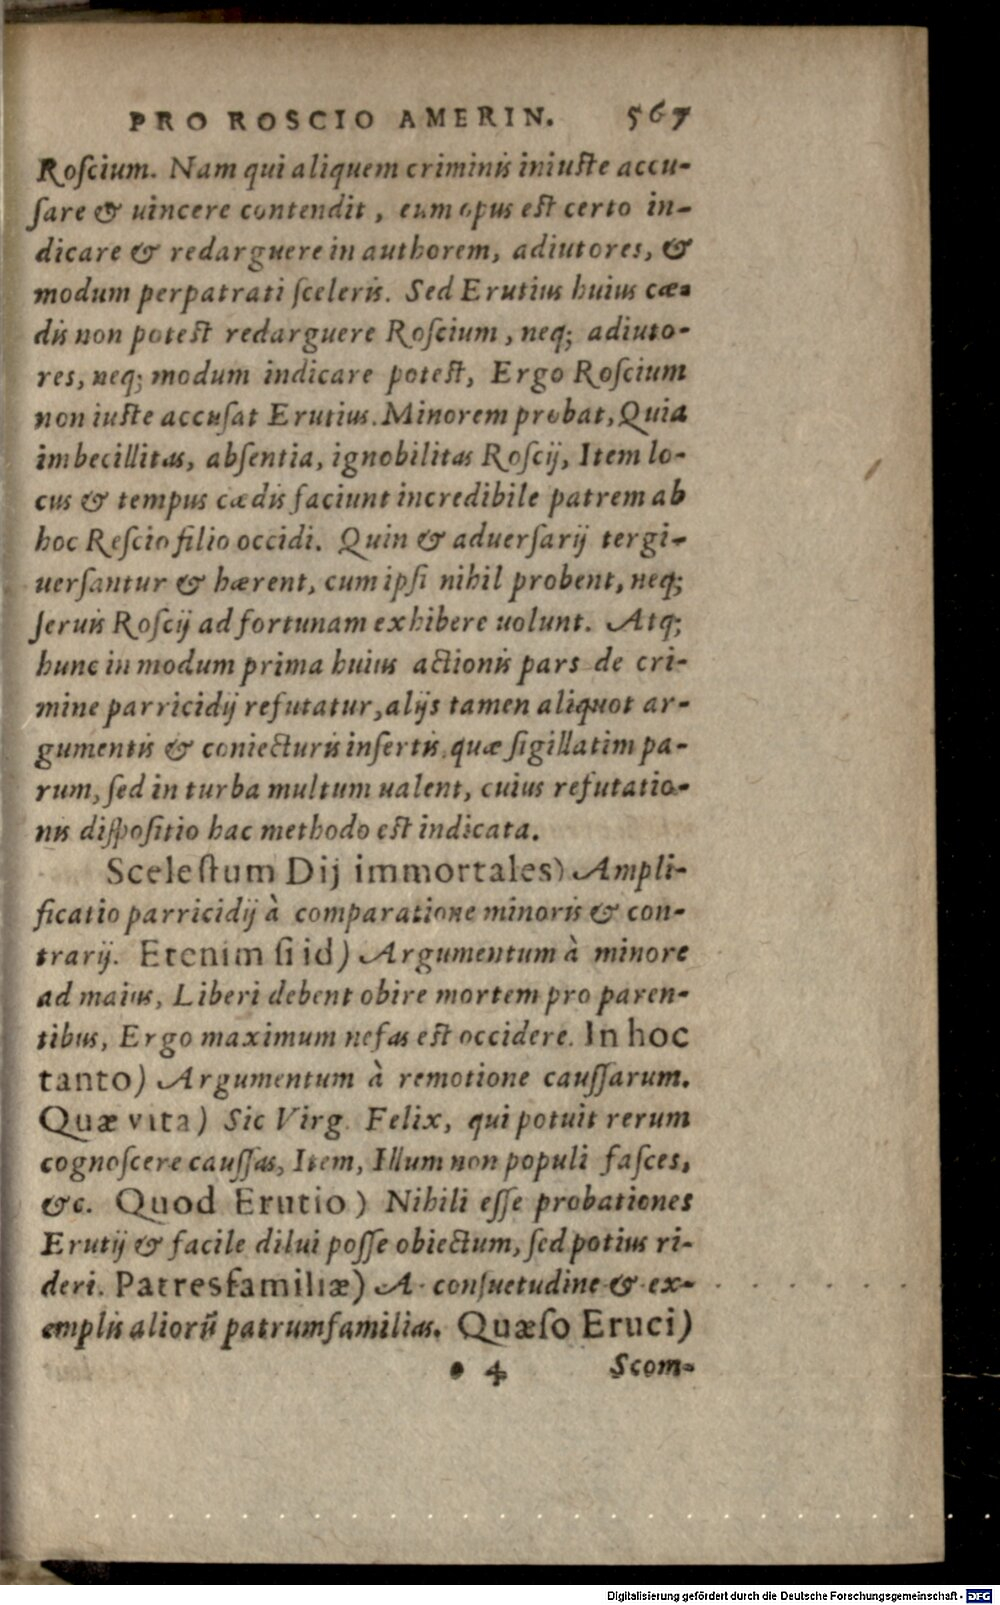 PRO ROSCIO AMERIN. 567
Roſcium. Nam qui aliquem criminis iniuſte accu-
ſare & uincere contendit, eum opus eſt certo in-
dicare & redarguere in authorem, adiutores, &
modum perpatrati ſceleris. Sed Erutius huius cæ-
dis non poteſt redarguere Roſcium, neq; adiuto-
res, neq; modum indicare poteſt, Ergo Roſcium
non iuſte accuſat Erutius. Minorem probat, Quia
imbecillitas, abſentia, ignobilitas Roſcij, Item lo-
cus & tempus cædis faciunt incredibile patrem ab
hoc Reſcio filio occidi. Quin & aduerſarij tergi-
uerſantur & hærent, cum ipſi nihil probent, neq;
ſeruis Roſcij ad fortunam exhibere uolunt. Atq;
hunc in modum prima huius actionis pars de cri-
mine parricidij refutatur, alijs tamen aliquot ar-
gumentis & coniecturis inſertis, quæ ſigillatim pa-
rum, ſed in turba multum ualent, cuius refutatio-
nis diſpoſitio hac methodo eſt indicata.
Sceleſtum Dij immortales) Ampli-
ficatio parricidij à comparatione minoris & con-
trarij. Etenim ſi id) Argumentum à minore
ad maius, Liberi debent obire mortem pro paren-
tibus, Ergo maximum nefas eſt occidere. In hoc
tanto) Argumentum à remotione cauſſarum.
Quæ vita) Sic Virg. Felix, qui potuit rerum
cognoſcere cauſſas, Item, Illum non populi faſces,
&c. Quod Erutio) Nihili eſſe probationes
Erutij & facile dilui poſſe obiectum, ſed potius ri-
deri. Patresfamiliæ) A conſuetudine & ex-
emplis aliorũ patrumfamilias. Quæſo Eruci)
• 4 Scom-
Digitalisierung gefördert durch die Deutsche Forschungsgemeinschaft - DFG